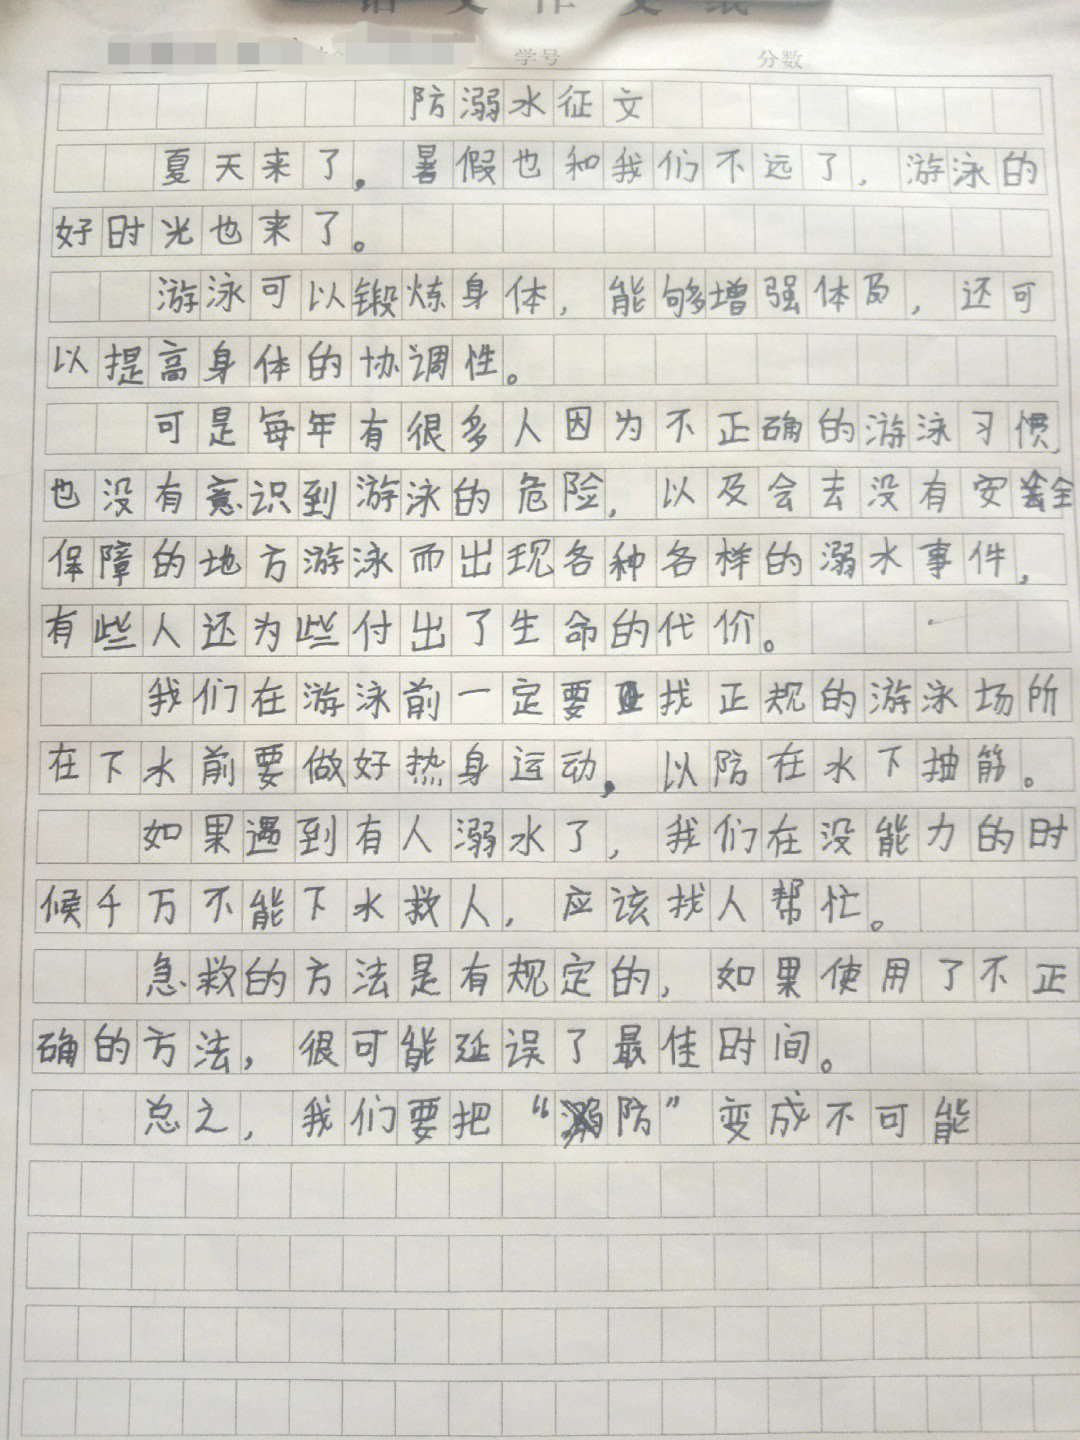 语文作文纸
学号 分数
防溺水征文
夏天来了，暑假也和我们不远了，游泳的
好时光也来了。
游泳可以锻炼身体，能够增强体质，还可
以提高身体的协调性。
可是每年有很多人因为不正确的游泳习惯，
也没有意识到游泳的危险，以及会去没有安全
保障的地方游泳而出现各种各样的溺水事件，
有些人还为些付出了生命的代价。
我们在游泳前一定要找正规的游泳场所
在下水前要做好热身运动，以防在水下抽筋。
如果遇到有人溺水了，我们在没能力的时
候千万不能下水救人，应该找人帮忙。
急救的方法是有规定的，如果使用了不正
确的方法，很可能延误了最佳时间。
总之，我们要把“防”变成不可能